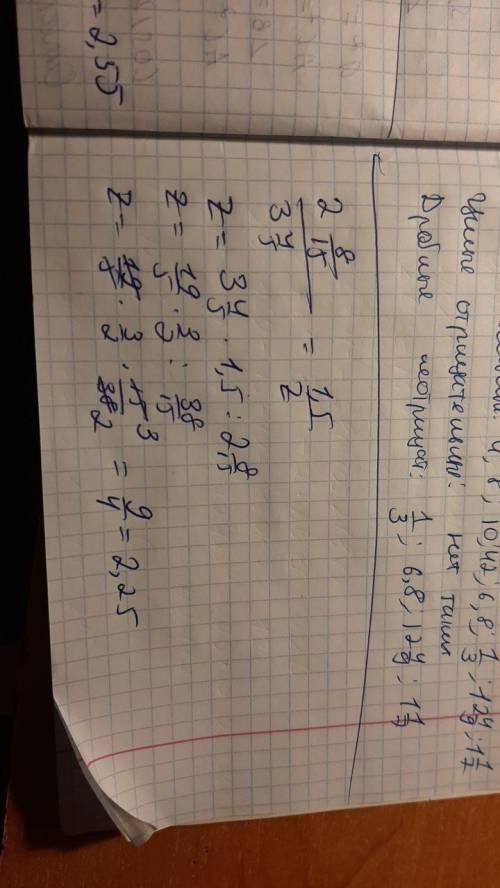 4, 8, 10, 42, 6,8; 1/3; 12 4/9; 1 1/7
Целые отрицательные: нет таких
Дробные неотрицат: 1/3; 6,8; 12 4/9; 1 1/7
2 8/15 / 3 4/5 = 1,5/z
z = 3 4/5 · 1,5 : 2 8/15
z = 19/5 · 3/2 : 38/15
z = 19/5 · 3/2 · 15 3/38 2 = 9/4 = 2,25
= 2,55